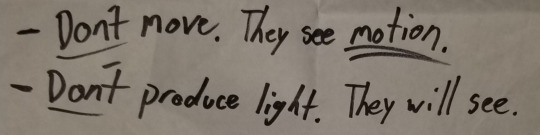 - Don't move. They see motion.
- Don't produce light. They will see.